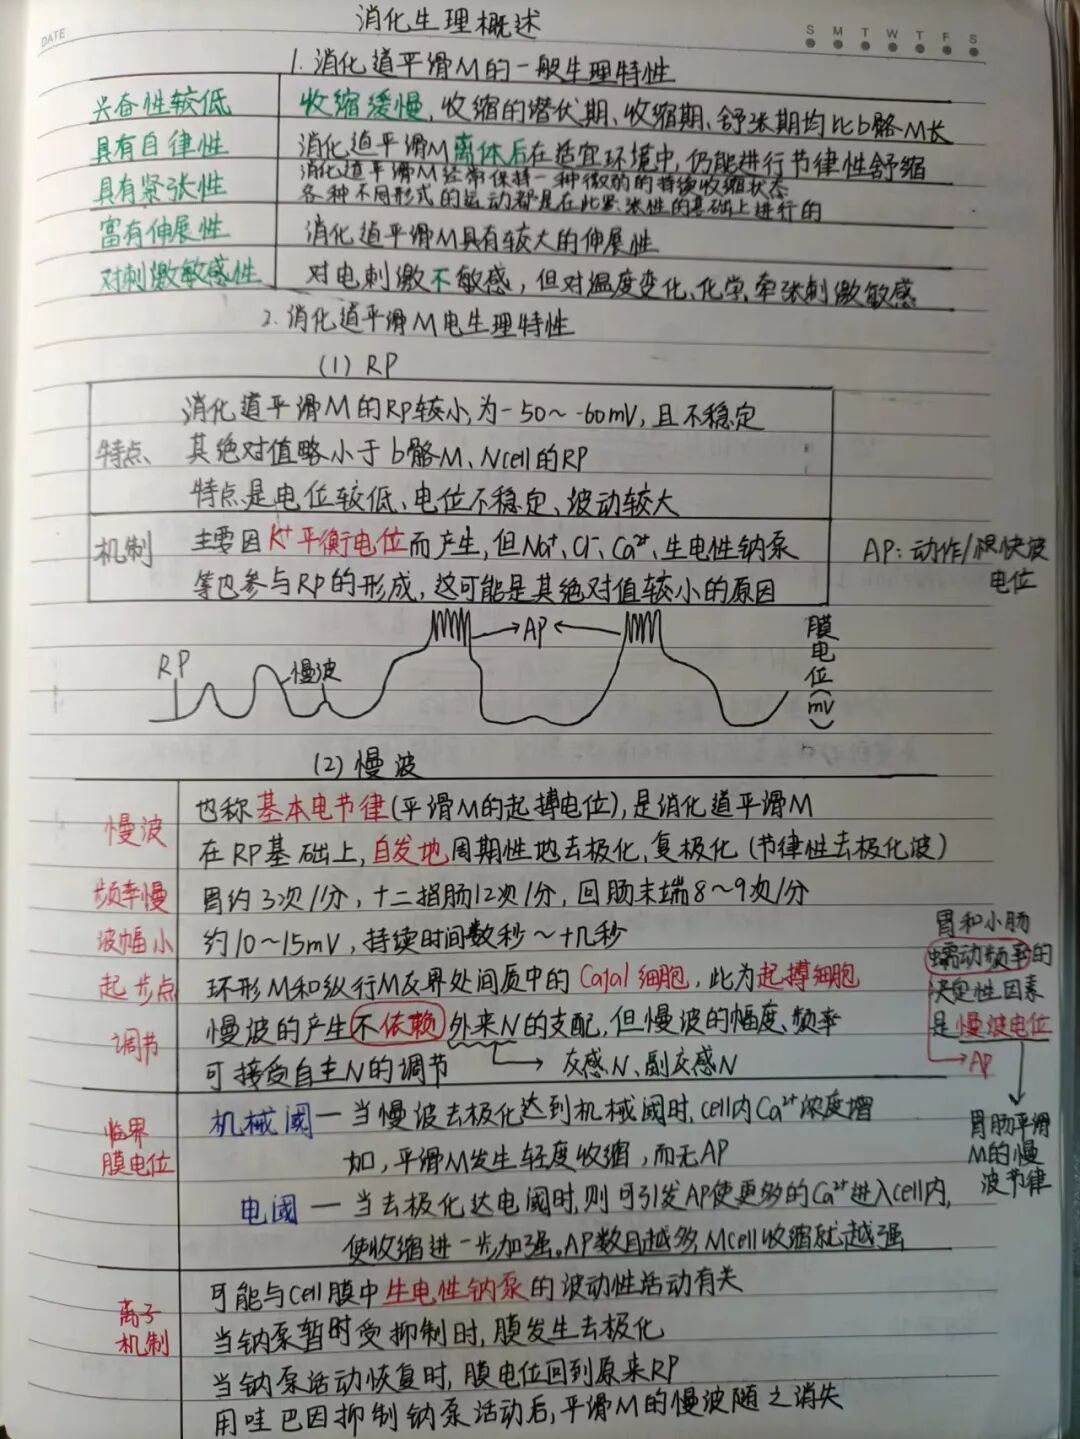 消化生理概述
DATE
S M T W T F S
1. 消化道平滑M的一般生理特性
兴奋性较低 收缩缓慢, 收缩的潜伏期、收缩期、舒张期均比b骼M长
具有自律性 消化道平滑M离体后在适宜环境中,仍能进行节律性舒缩
具有紧张性 消化道平滑M经常保持一种微弱的持续收缩状态
各种不同形式的运动都是在此紧张性的基础上进行的
富有伸展性 消化道平滑M具有较大的伸展性
对刺激敏感性 对电刺激不敏感, 但对温度变化、化学、牵张刺激敏感
2. 消化道平滑M电生理特性
(1) RP
消化道平滑M的RP较小,为-50~-60mV, 且不稳定
特点 其绝对值略小于b骼M、Ncell的RP
特点是电位较低、电位不稳定、波动较大
机制 主要因K⁺平衡电位而产生,但Na⁺、Cl⁻、Ca²⁺、生电性钠泵
等也参与RP的形成, 这可能是其绝对值较小的原因
AP: 动作/快波
电位
RP
慢波
AP
膜电位(mV)
(2) 慢波
慢波 也称基本电节律(平滑M的起搏电位),是消化道平滑M
在RP基础上,自发地周期性地去极化、复极化(节律性去极化波)
频率慢 胃约3次/分, 十二指肠12次/分, 回肠末端8~9次/分
波幅小 约10~15mV, 持续时间数秒~十几秒
起步点 环形M和纵行M交界处间质中的Cajal细胞, 此为起搏细胞
调节 慢波的产生不依赖外来N的支配,但慢波的幅度、频率
可接受自主N的调节 → 交感N、副交感N
胃和小肠
蠕动频率的
决定性因素
是慢波电位
→AP
胃肠平滑
M的慢
波节律
临界
膜电位
机械阈—当慢波去极化达到机械阈时, cell内Ca²⁺浓度增
加, 平滑M发生轻度收缩, 而无AP
电阈—当去极化达电阈时,则可引发AP使更多的Ca²⁺进入cell内,
使收缩进一步加强。AP数目越多,Mcell收缩就越强
离子
机制
可能与cell膜中生电性钠泵的波动性活动有关
当钠泵暂时受抑制时,膜发生去极化
当钠泵活动恢复时,膜电位回到原来RP
用哇巴因抑制钠泵活动后,平滑M的慢波随之消失